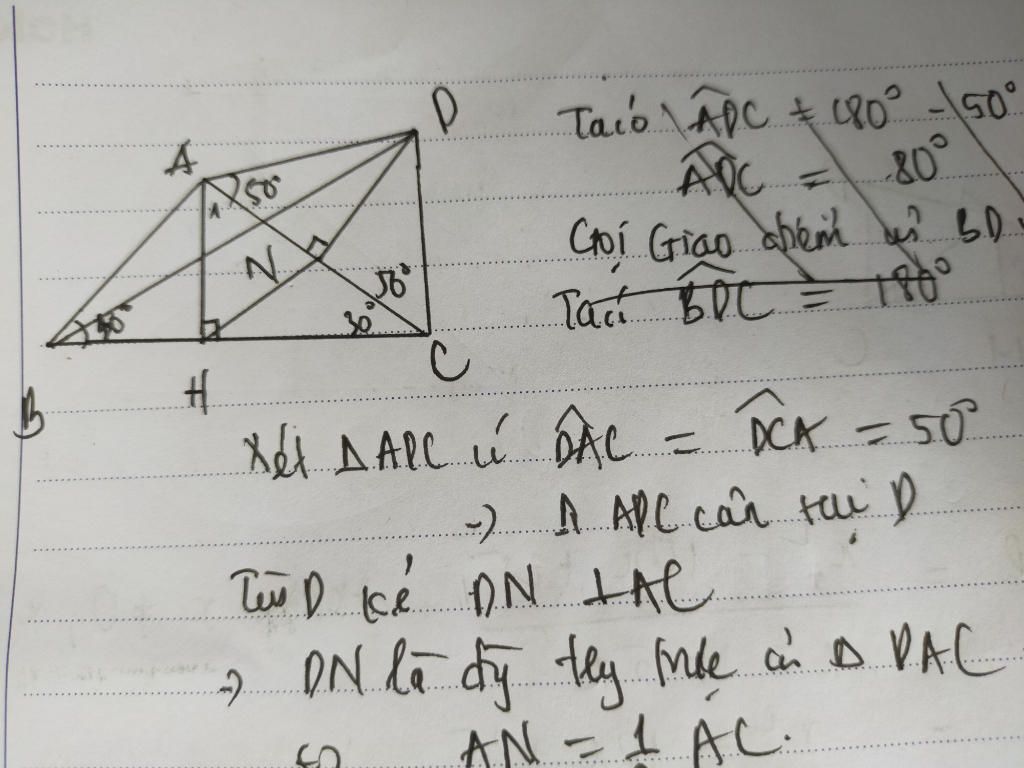 D
A
50°
1
N
50°
30°
40°
B
H
C
Ta có ADC = 180° - 50°
ADC = 80°
Gọi Giao điểm BD
Ta có BDC = 180°
Xét Δ ADC có DAC = DCA = 50°
-> Δ ADC cân tại D
Từ D kẻ DN ⊥ AC
-> DN là Δ DAC
AN = 1 AC.